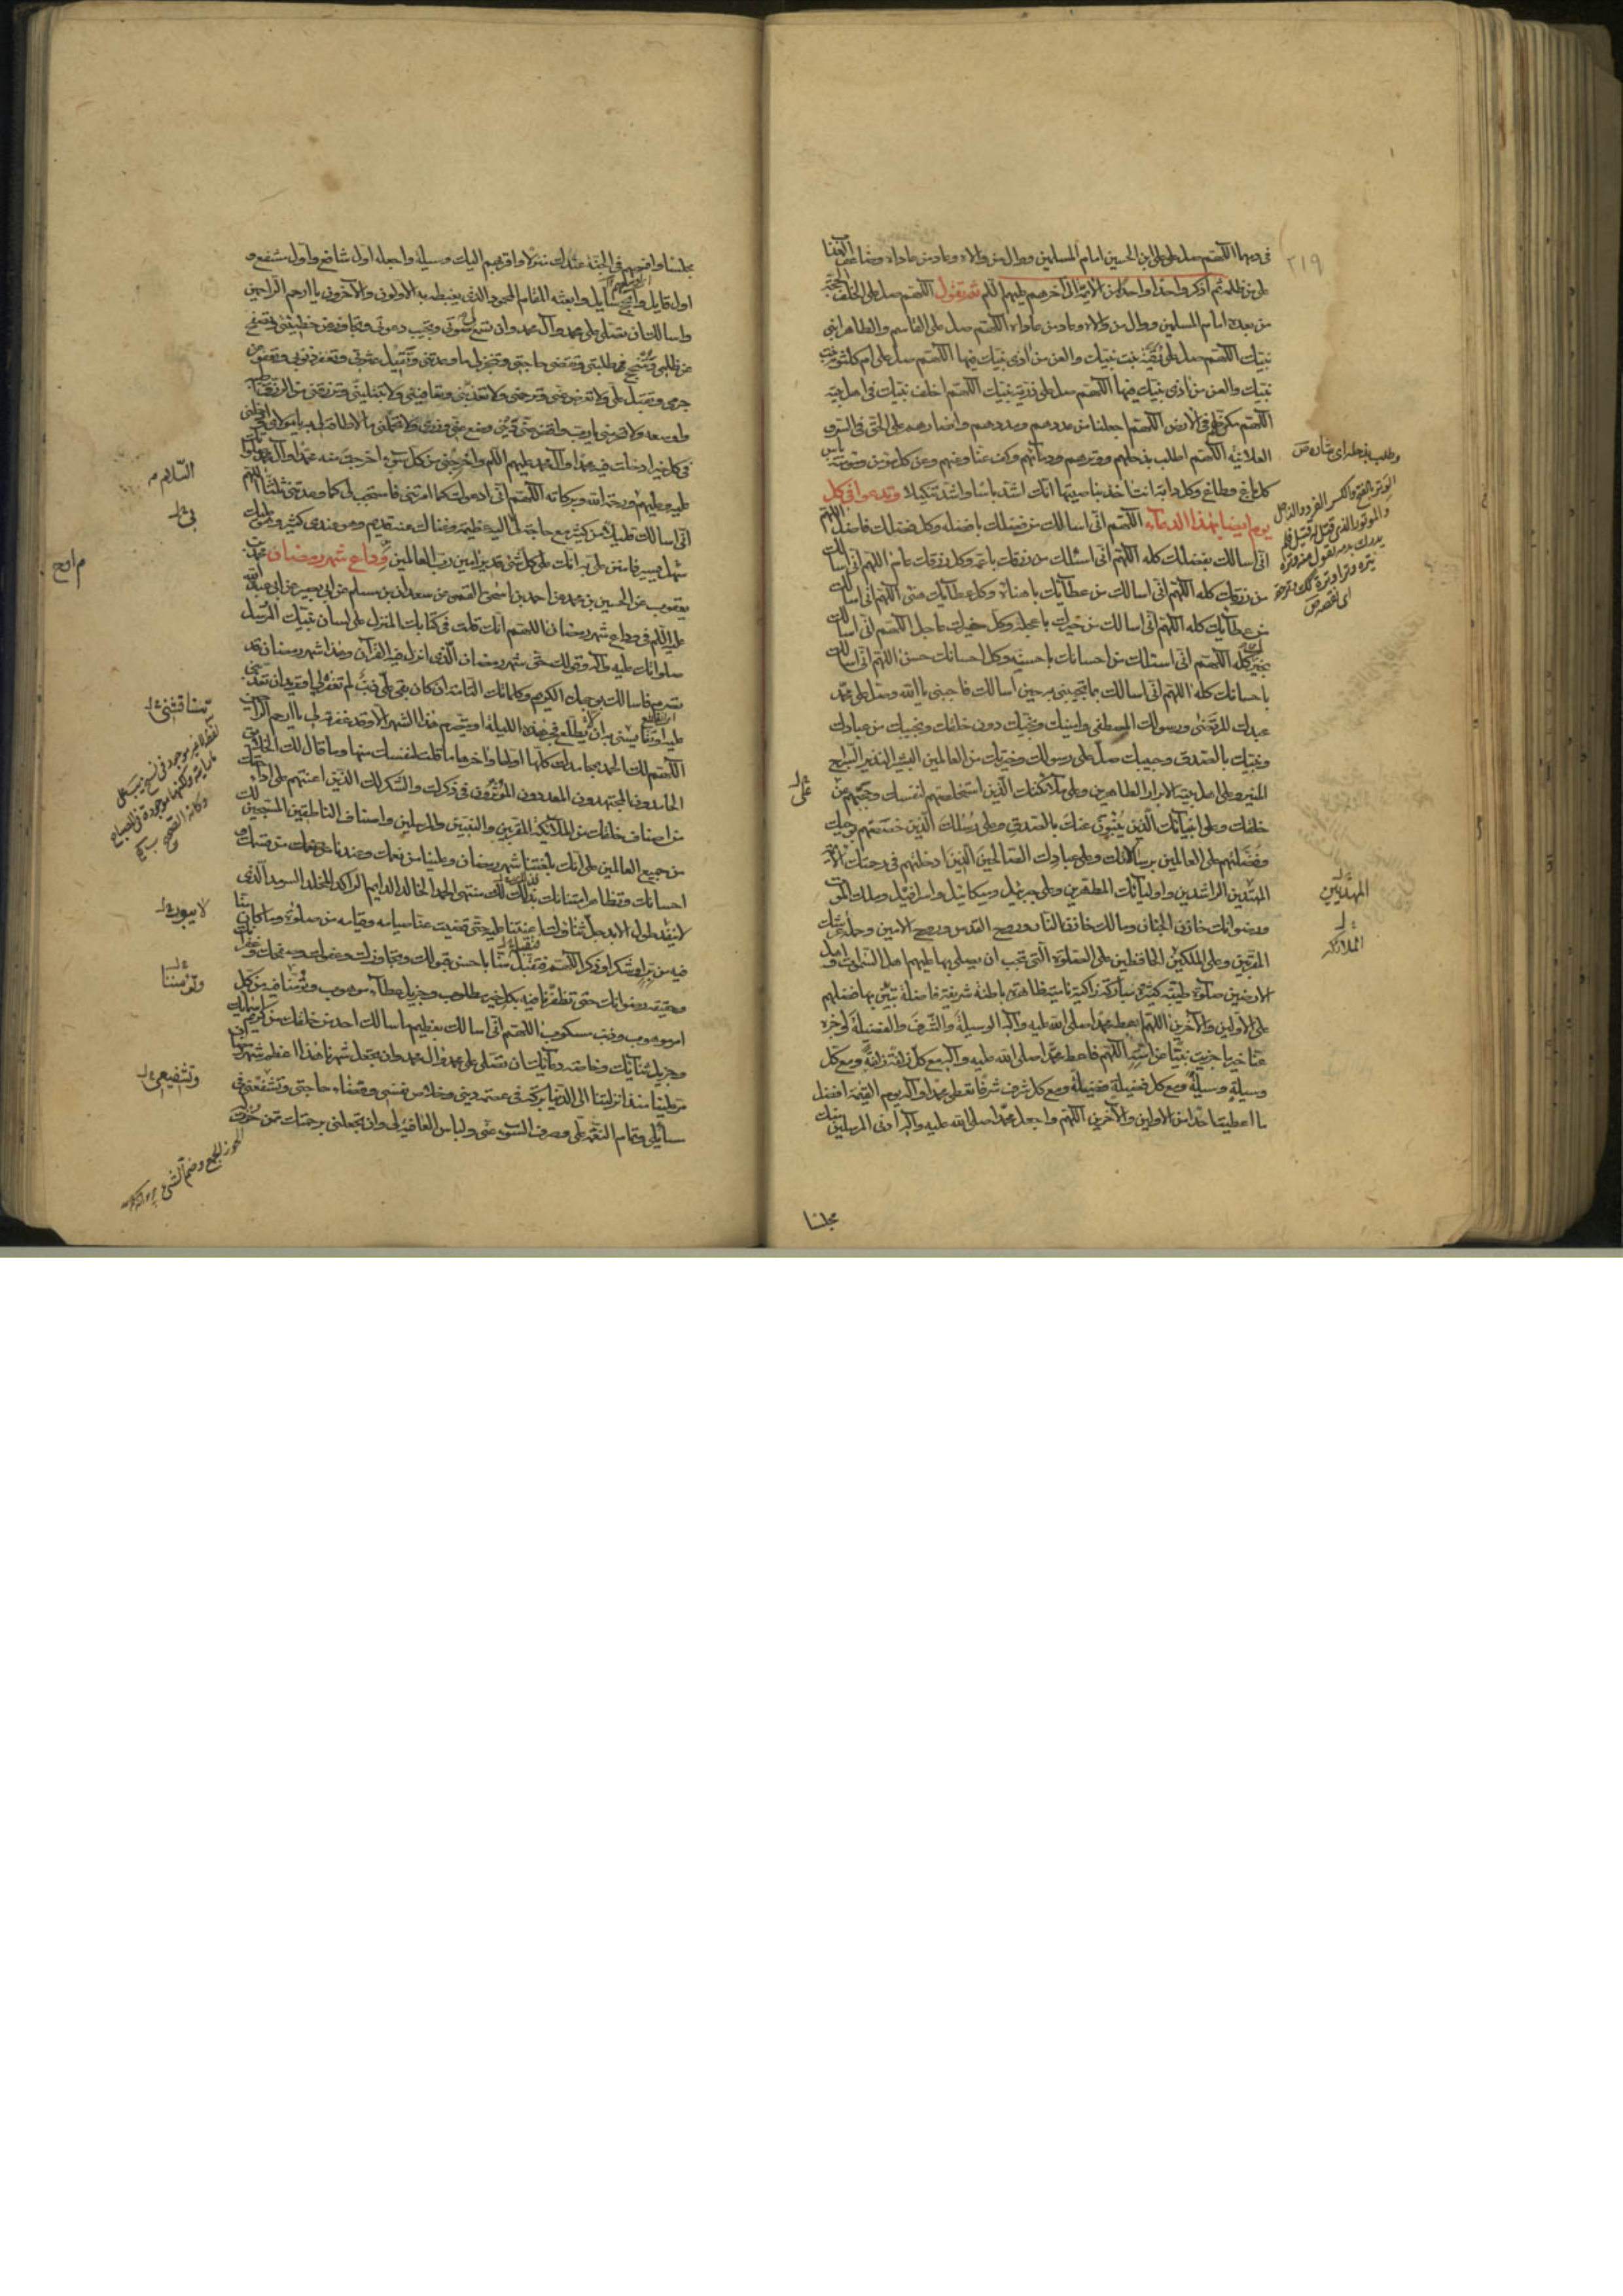 في دمها اللهم صل على علي بن الحسين امام المسلمين ووال من والاه وعاد من عاداه وضاعف العذاب
على من ظلمه ثم اذكر واحدا واحدا من الائمة الى آخرهم عليهم السلم ثم تقول اللهم صل على الخلف الحجة
من بعده امام المسلمين ووال من والاه وعاد من عاداه اللهم صل على القاسم والطاهر ابني
نبيك اللهم صل على رقية بنت نبيك والعن من آذى نبيك فيها اللهم صل على ام كلثوم بنت
نبيك والعن من آذى نبيك فيها اللهم صل على ذرية نبيك اللهم اخلف نبيك في اهل بيته
اللهم مكن لهم في الارض اللهم اجعلنا من عددهم ومددهم وانصارهم على الحق في السر و
العلانية اللهم اطلب بذحلهم ووترهم ودمائهم وكف عنا وعنهم وعن كل مؤمن ومؤمنة باس
كل باغ وطاغ وكل دابة انت آخذ بناصيتها انك اشد باسا واشد تنكيلا وتدعو في كل
يوم ايضا بهذا الدعاء اللهم اني اسالك من فضلك بافضله وكل فضلك فاضل اللهم
اني اسالك بفضلك كله اللهم اني اسئلك من رزقك باعمه وكل رزقك عام اللهم اني اسالك
من رزقك كله اللهم اني اسالك من عطائك باهناه وكل عطائك هنئ اللهم اني اسالك
من عطائك كله اللهم اني اسالك من خيرك باعجله وكل خيرك عاجل اللهم اني اسالك
بخيرك كله اللهم اني اسئلك من احسانك باحسنه وكل احسانك حسن اللهم اني اسالك
باحسانك كله اللهم اني اسالك بما تجيبني به حين اسالك فاجبني يا الله وصل على محمد
عبدك المرتضى ورسولك المصطفى وامينك ونجيك دون خلقك ونجيبك من عبادك
ونبيك بالصدق وحبيبك صل على رسولك وخيرتك من العالمين البشير النذير السراج
المنير وعلى اهل بيته الابرار الطاهرين وعلى ملائكتك الذين استخلصتهم لنفسك وحجبتهم عن
خلقك وعلى انبيائك الذين ينبئون عنك بالصدق وعلى رسلك الذين خصصتهم بوحيك
وفضلتهم على العالمين برسالاتك وعلى عبادك الصالحين الذين ادخلتهم في رحمتك الائمة
المهتدين الراشدين واوليائك المطهرين وعلى جبرئيل وميكائيل واسرافيل وملك الموت
ورضوانك خازن الجنان ومالك خازن النار وروح القدس وروح الامين وحملة عرشك
المقربين وعلى الملكين الحافظين علي الصلوة التي تحب ان يصلي بها عليهم اهل السموات واهل
الارضين صلوة طيبة كثيرة مباركة زاكية نامية ظاهرة باطنة شريفة فاضلة تبين بها فضلهم
على الاولين والآخرين اللهم اعط محمدا صلى الله عليه وآله الوسيلة والشرف والفضيلة واجزه
عنا خير ما جزيت نبيا عن امته اللهم فاعط محمدا صلى الله عليه وآله مع كل زلفة زلفة ومع كل
وسيلة وسيلة ومع كل فضيلة فضيلة ومع كل شرف شرفا تعطى محمدا وآله يوم القيمة افضل
ما اعطيت احدا من الاولين والآخرين اللهم واجعل محمدا صلى الله عليه وآله ادنى المرسلين منك
مجلسا
٢١٩
المهديين
الملائكة
مجلسا وافسحهم في الجنة عندك منزلا واقربهم اليك وسيلة واجعله اول شافع واول مشفع و
اول قايل وانجح سائل وابعثه المقام المحمود الذي يغبطه به الاولون والآخرون يا ارحم الراحمين
واسالك ان تصلي على محمد وآل محمد وان تسمع صوتي وتجيب دعوتي وتجاوز عن خطيئتي وتصفح
عن ظلمي وتنجح طلبتي وتقضي حاجتي وتنجز لي ما وعدتني وتقيل عثرتي وتغفر ذنوبي وتعفو عن
جرمي وتقبل علي ولا تعرض عني وترحمني ولا تعذبني وتعافيني ولا تبتليني وترزقني من الرزق اطيبه
واوسعه ولا تحرمني يا رب واقض عني ديني وضع عني وزري ولا تحملني ما لا طاقة لي به يا مولاي وادخلني
في كل خير ادخلت فيه محمدا وآل محمد عليهم السلم واخرجني من كل سوء اخرجت منه محمدا وآل محمد صلواتك
عليه وعليهم ورحمة الله وبركاته اللهم اني ادعوك كما امرتني فاستجب لي كما وعدتني ثلثا اللهم
اني اسالك قليلا من كثير مع حاجة بي اليه عظيمة وغناك عنه قديم وهو عندي كثير وهو عليك
سهل يسير فامنن علي به انك على كل شئ قدير آمين رب العالمين وداع شهر رمضان محمد بن
يعقوب عن الحسين بن محمد عن احمد بن اسحق القمي عن سعدان بن مسلم عن ابي بصير عن ابي عبد الله
عليه السلم في وداع شهر رمضان اللهم انك قلت في كتابك المنزل على لسان نبيك المرسل
صلواتك عليه وآله وقولك حق شهر رمضان الذي انزل فيه القرآن وهذا شهر رمضان قد
تصرم فاسالك بوجهك الكريم وكلماتك التامة ان كان بقي علي ذنب لم تغفره لي او تريد ان تعذبني
عليه او تقايسني به ان يطلع فجر هذه الليلة او يتصرم هذا الشهر الا وقد غفرته لي يا ارحم الراحمين
اللهم لك الحمد بمحامدك كلها اولها وآخرها ما قلت لنفسك منها وما قال لك الخلائق
الحامدون المجتهدون المعددون المؤثرون في ذكرك والشكر لك الذين اعنتهم على اداء حقك
من اصناف خلقك من الملائكة المقربين والنبيين والمرسلين واصناف الناطقين المسبحين لك
من جميع العالمين على انك بلغتنا شهر رمضان وعلينا من نعمك وعندنا من قسمك و
احسانك وتظاهر امتنانك بذلك لك منتهى الحمد الخالد الدائم الراكد المخلد السرمد الذي
لا ينفد طول الابد جل ثناؤك اعنتنا عليه حتى قضيت عنا صيامه وقيامه من صلوة وما كان منا
فيه من بر او شكر او ذكر اللهم فتقبله منا باحسن قبولك وتجاوزك وعفوك وصفحك وغفرانك
وحقيقة رضوانك حتى تظفرنا فيه بكل خير مطلوب وجزيل عطاء موهوب وتؤمننا فيه من كل
امر مرهوب وذنب مكسوب اللهم اني اسالك بعظيم ما سالك احد من خلقك من كريم اسمائك
وجزيل ثنائك وخاصة دعائك ان تصلي على محمد وآل محمد وان تجعل شهرنا هذا اعظم شهر رمضان
مر علينا منذ انزلتنا الى الدنيا بركة في عصمة ديني وخلاص نفسي وقضاء حاجتي وتشفعني في
مسائلي وتمام النعمة علي وصرف السوء عني ولباس العافية لي وان تجعلني برحمتك ممن حزت
السلام
وتؤمننا